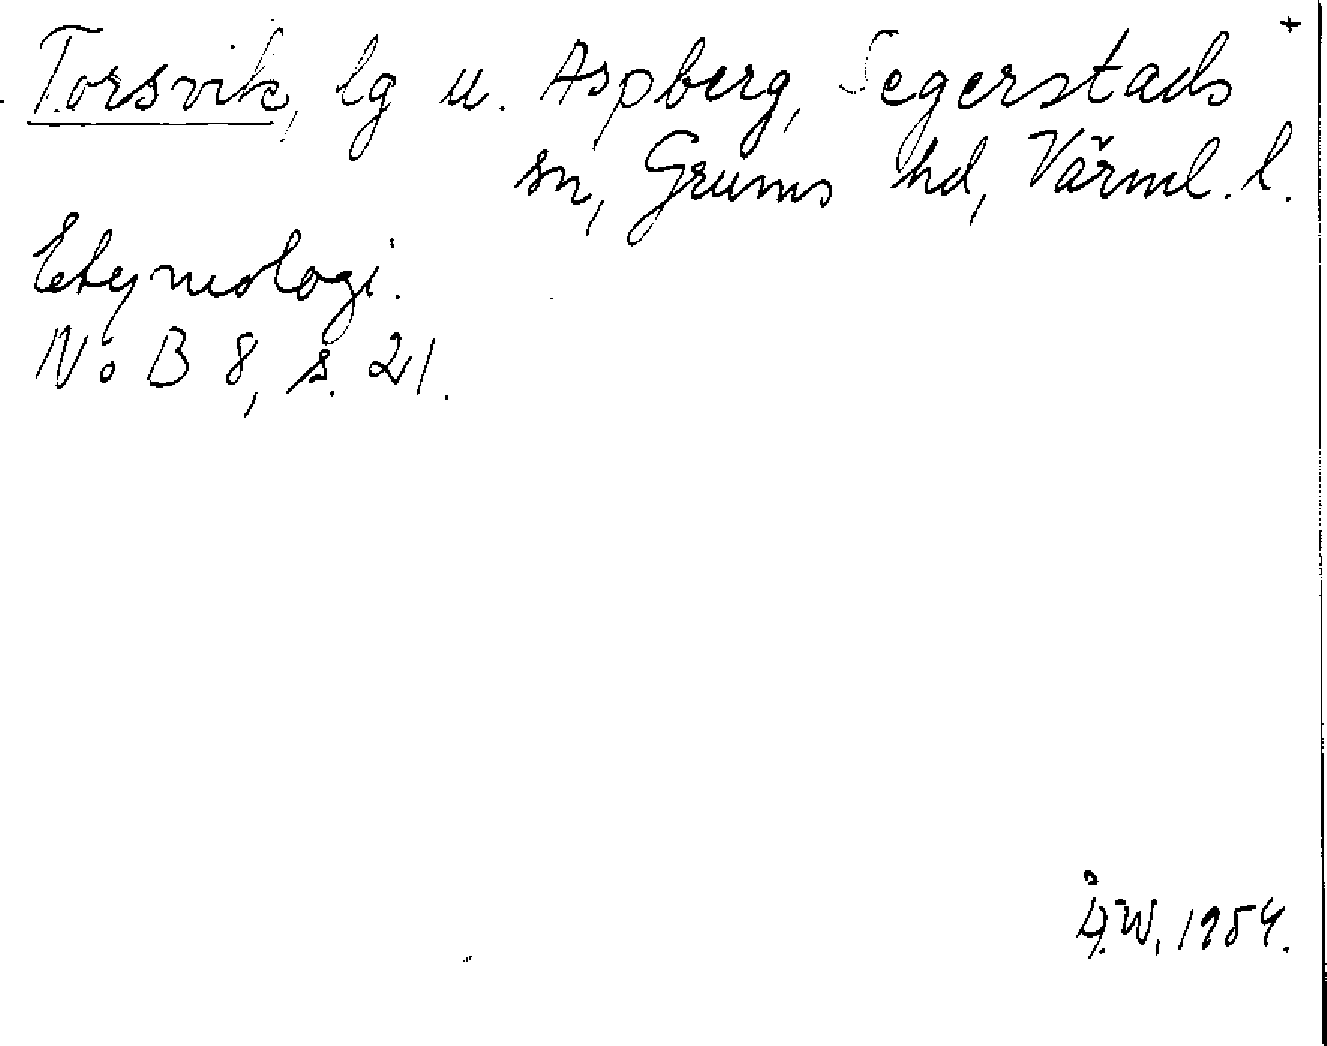 Torsvik, lg u. Aspberg, Segerstads +
sn, Grums hd, Värml. l.
Etymologi.
NoB 8, s. 21.
Å.W. 1954.